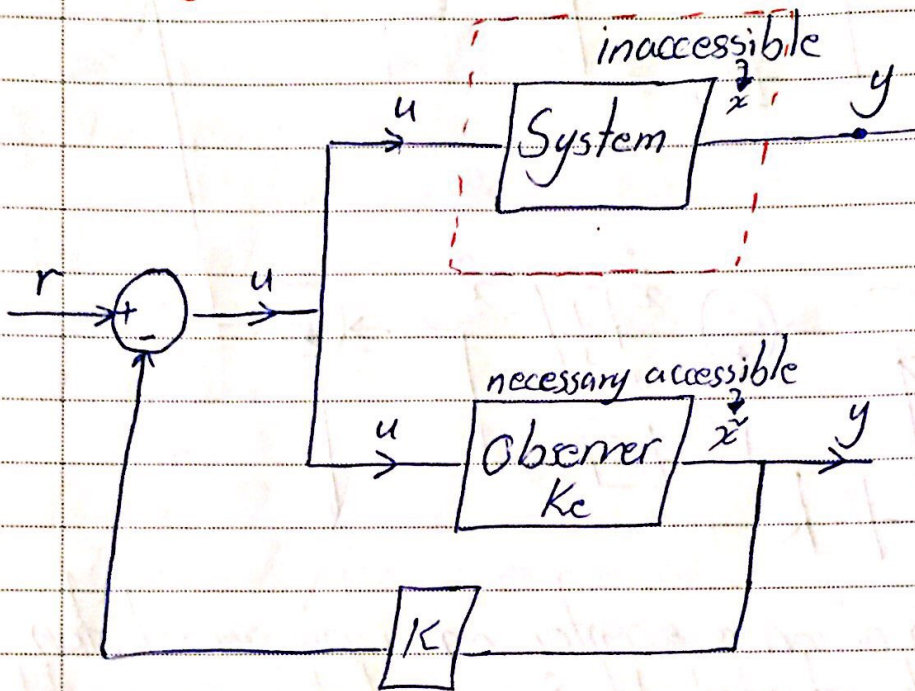 inaccessible
x
u
System
y
r
+
u
-
necessary accessible
x̃
u
Observer
y
Ke
K